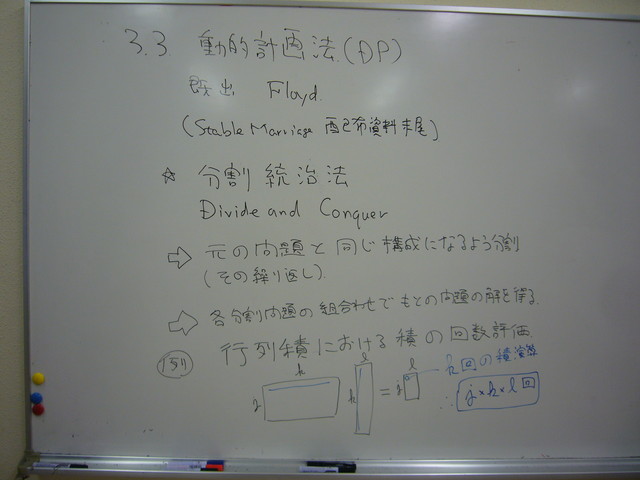 3.3 動的計画法(DP)
既出 Floyd.
(Stable Marriage 配布資料末尾)
☆ 分割統治法
Divide and Conquer
⇨ 元の問題と同じ構成になるよう分割
(その繰り返し).
⇨ 各分割問題の組合わせでもとの問題の解を得る.
例 行列積における積の回数評価
k l l k回の積演算
j k = j ∴ j×k×l回